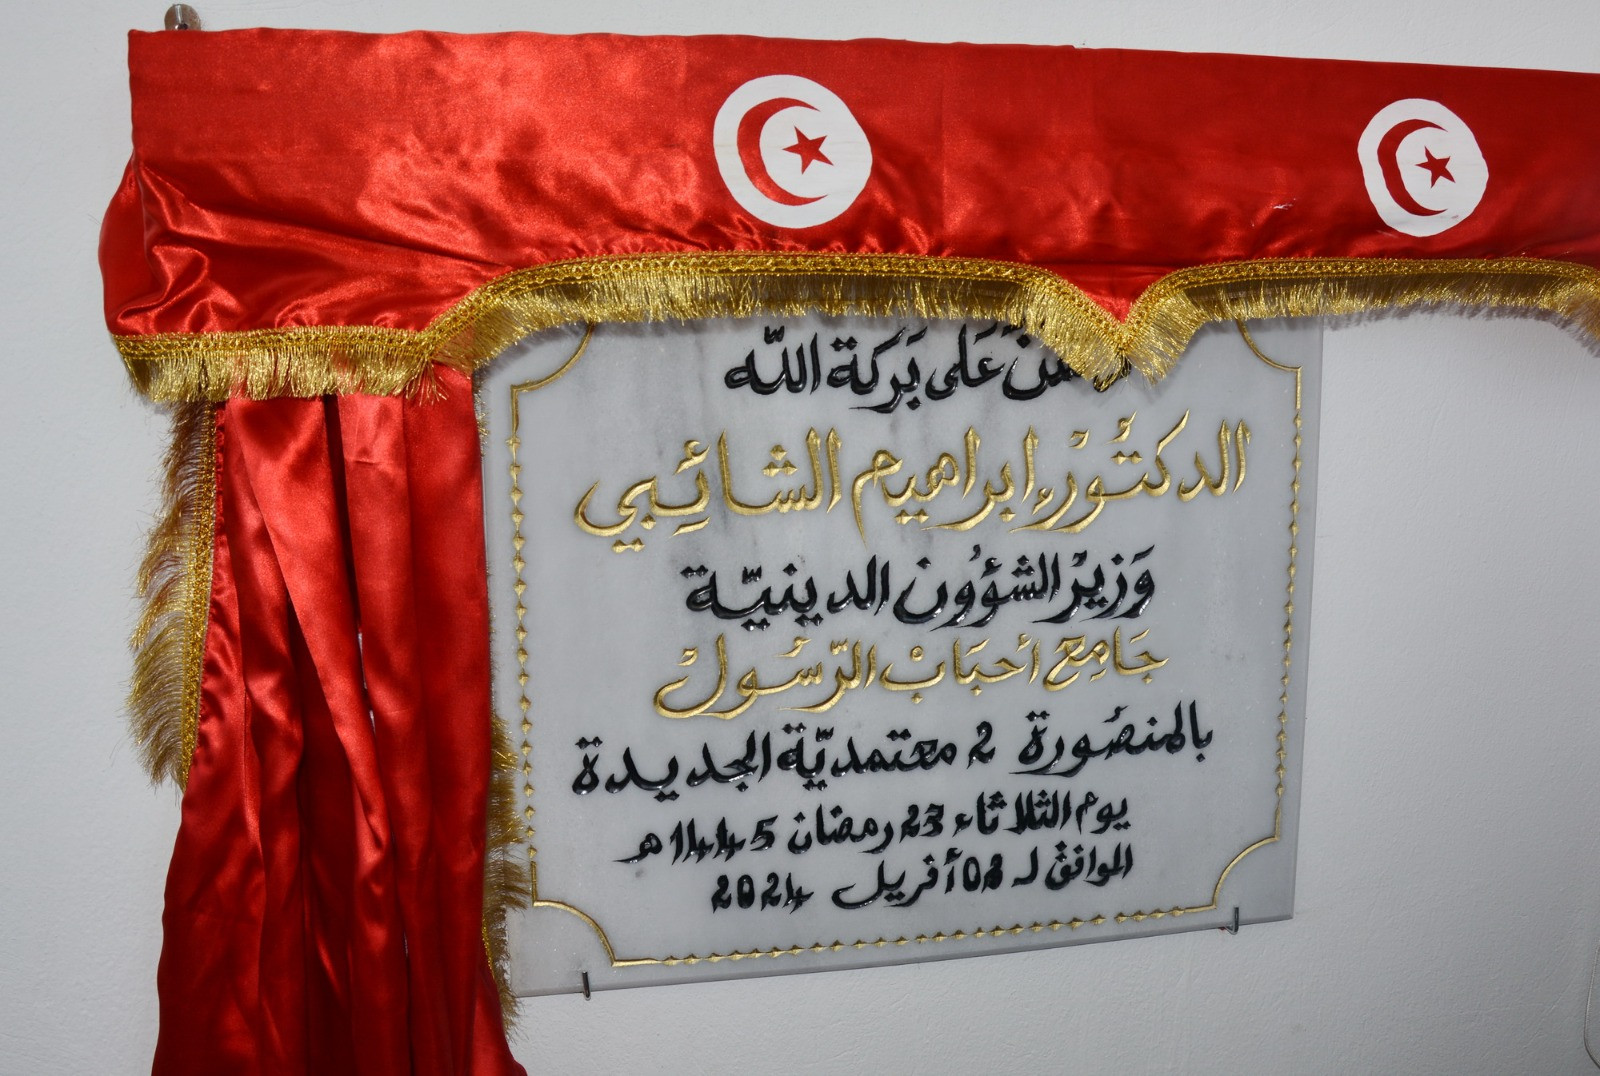 عَلَى بَرَكَةِ اللّه
الدكتُورْ إبراهيم الشائِبي
وَزيرْ الشؤُون الدينيّة
جَامِعْ أحبَابْ الرّسُولْ
بالمنصُورة 2 معتمديّة الجديدة
يوم الثلاثاء 23 رمضان 1445هـ
الموافق لـ 02 أفريل 2024